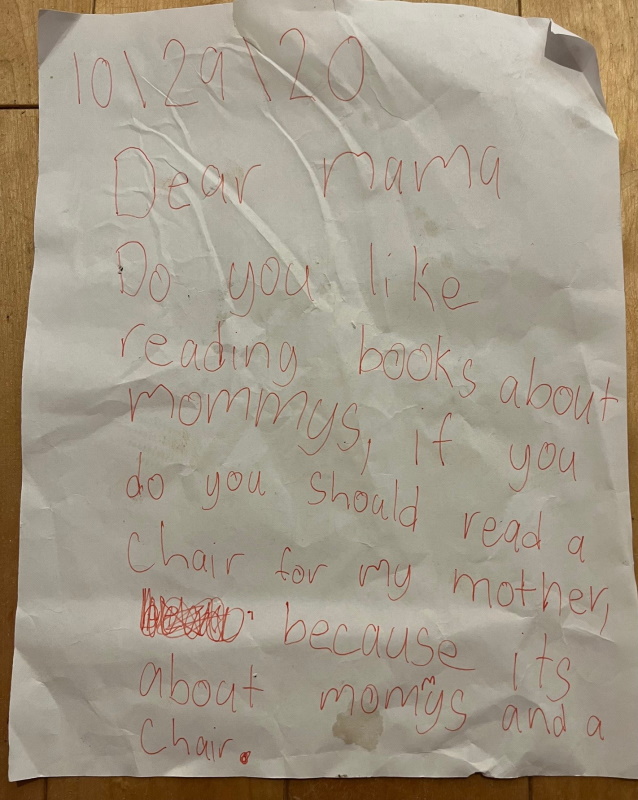 10\29\20
Dear mama
Do you like
reading books about
mommys, if you
do you should read a
Chair for my mother,
because its
about mommys and a
Chair.